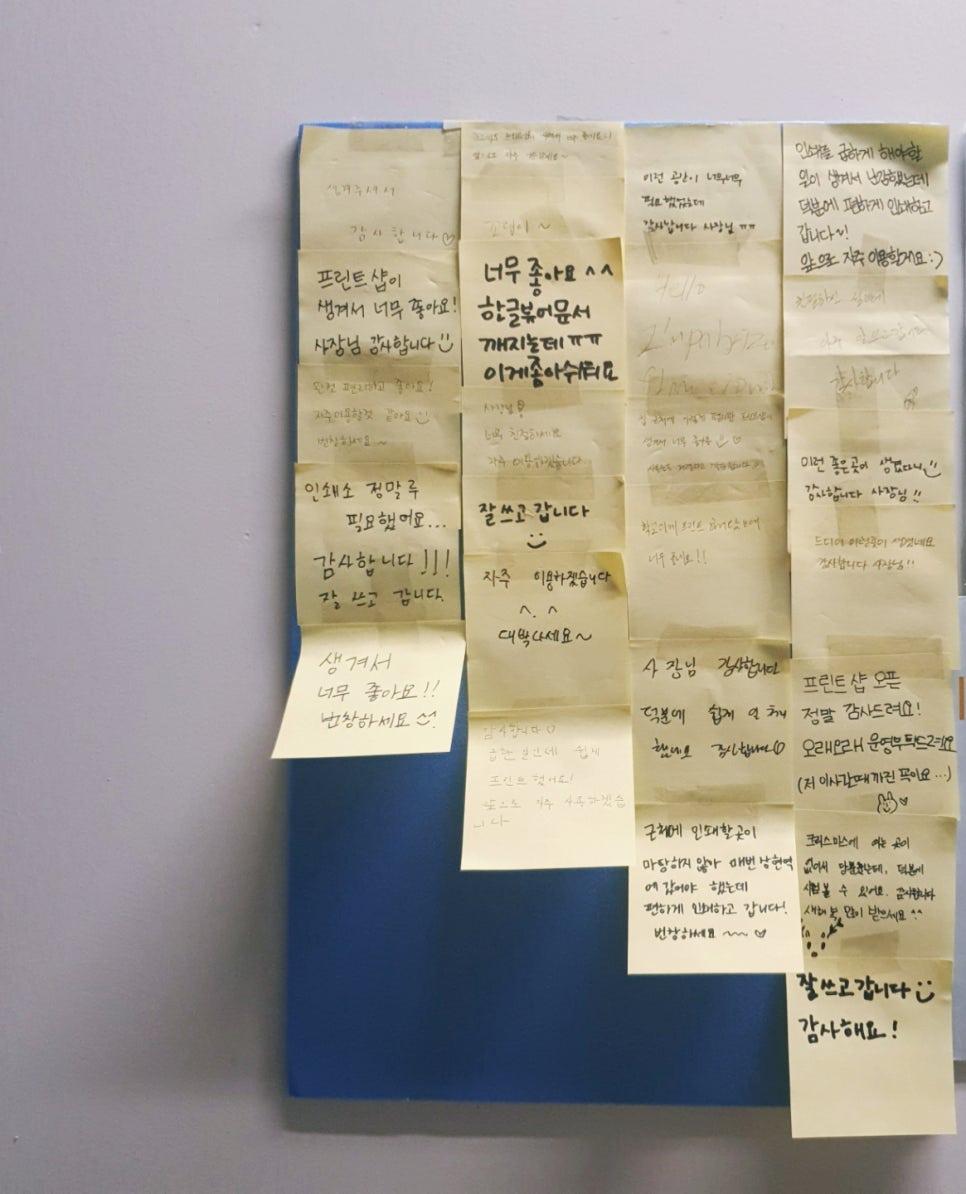 생겨주셔서
감사합니다♡
프린트샵이
생겨서 너무 좋아요!
사장님 감사합니다
완전 편리하고 좋아요!
자주이용할것 같아요
번창하세요~
인쇄소 정말루
필요했어요...
감사합니다!!!
잘 쓰고 갑니다.
생겨서
너무 좋아요!!
번창하세요
자주
너무 좋아요 ^^
한글뷰어문서
깨지는데 ㅠㅠ
이게좋아쉬워요
사장님
너무 친절하세요
자주 이용하겠습니다
잘쓰고갑니다
자주 이용하겠습니다
^.^
대박나세요~
감사합니다♡
급한 일인데 쉽게
프린트했어요!
앞으로 자주 사용하겠습
니다
이런 공간이 너무너무
필요했었는데
감사합니다 사장님 ㅠㅠ
Hello
생겨서 너무
너무 좋네요!!
사장님 감사합니다
덕분에 쉽게
했네요 감사합니다♡
근처에 인쇄할곳이
마땅하지 않아 매번 낭현역
에 갔어야 했는데
편하게 인쇄하고 갑니다!
번창하세요 ~~ ♡
인쇄를 급하게 해야할
일이 생겨서 난감했는데
덕분에 편하게 인쇄하고
갑니다~!
앞으로 자주 이용할게요:)
친절하신
아주 잘쓰고갑니다
감사합니다
이런 좋은곳이 생겼다니
감사합니다 사장님!!
드디어 이런곳이 생겼네요
감사합니다 사장님!!
프린트샵 오픈
정말 감사드려요!
오래오래 운영부탁드려요
(저 이사갈때까진 꼭이요...)
크리스마스에 여는 곳이
없어서 당황했는데, 덕분에
시험 볼 수 있어요. 감사합니다
새해 복 많이 받으세요 ^^
잘쓰고갑니다
감사해요!